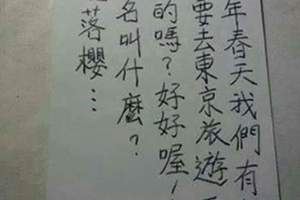 年春天我們有
要去東京旅遊
的嗎?好好喔!
名叫什麼?
落櫻…